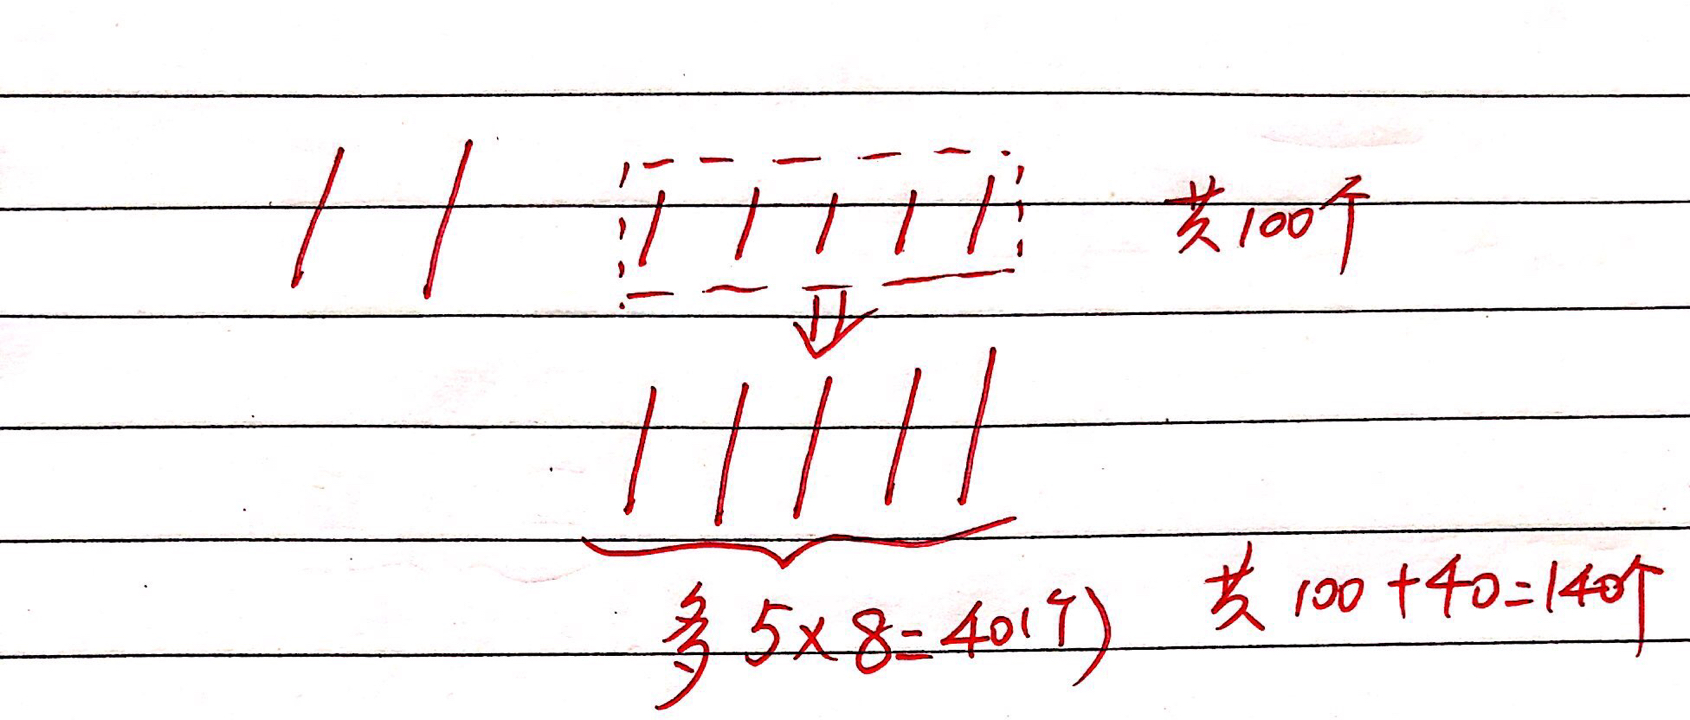 共100个
多 5×8=40(个)
共 100+40=140个